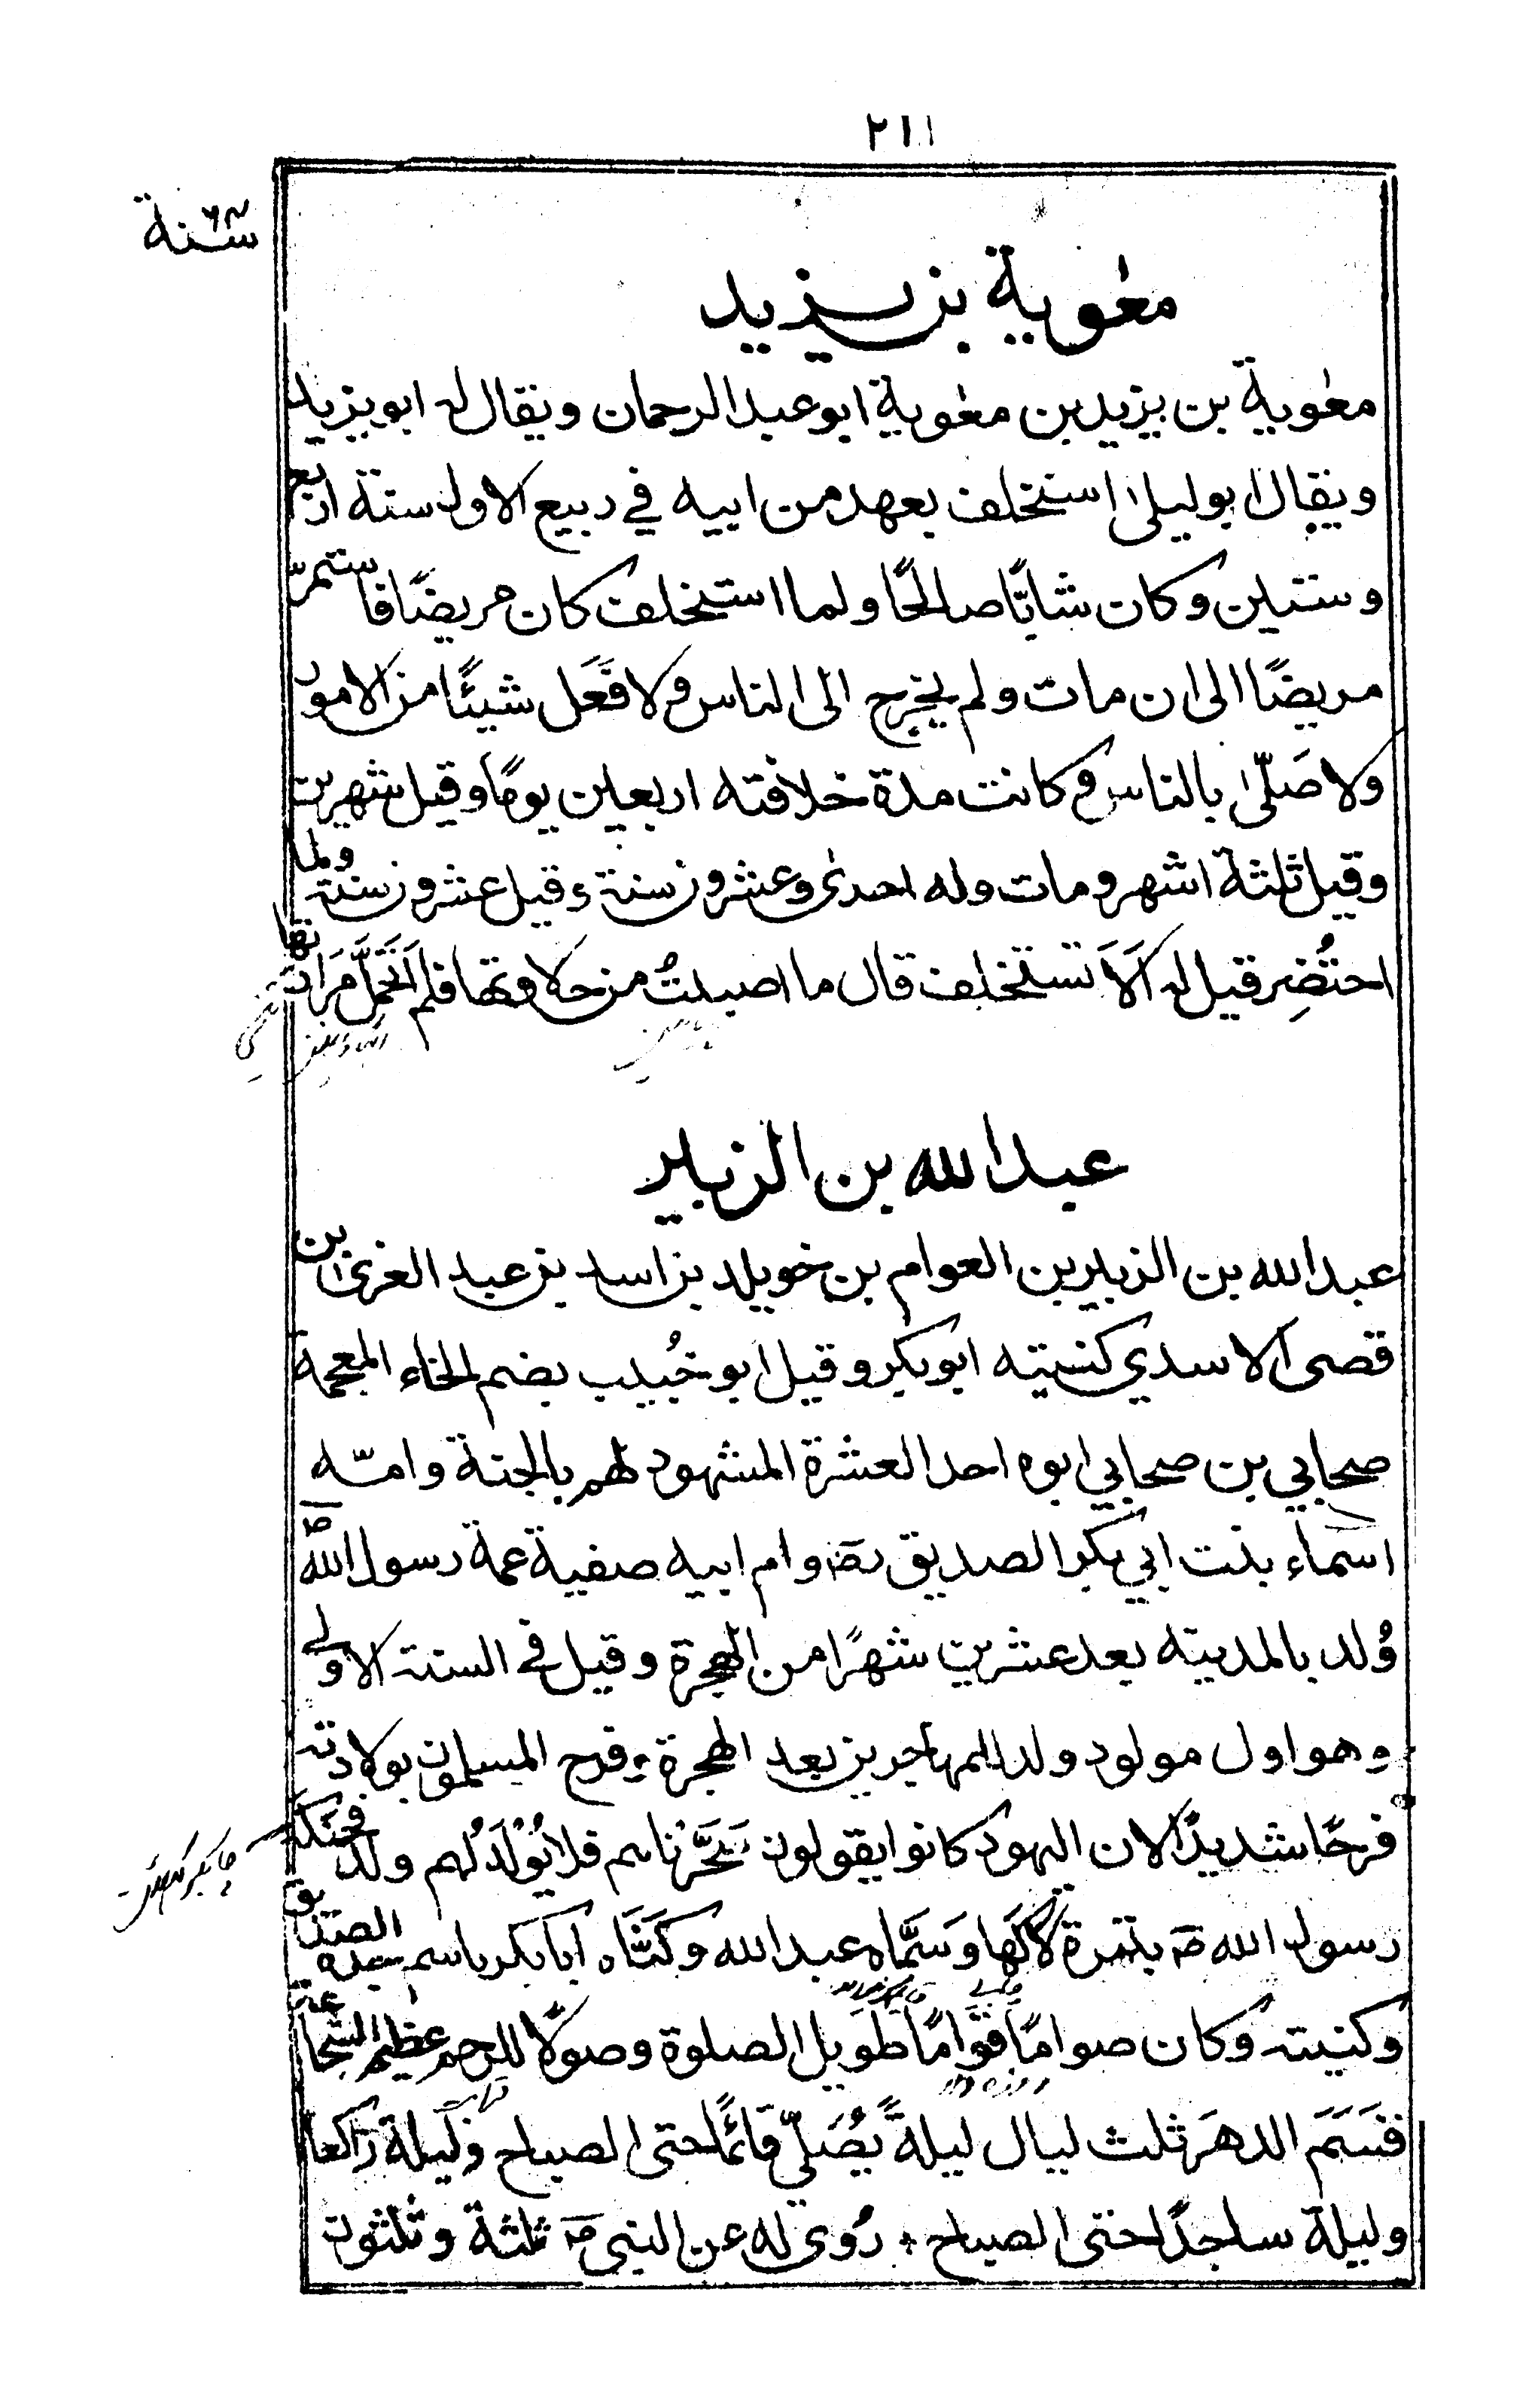 ٢١١
سنة ٦٤
معٰوية بن يزيد
معٰوية بن يزيد بن معٰوية ابو عبد الرحمان ويقال له ابو يزيد
ويقال ابو ليلىٰ استخلف بعهد من ابيه في ربيع الاول سنة اربع
وستين وكان شابًّا صالحًا ولما استخلف كان مريضًا فاستمر
مريضًا الى ان مات ولم يخرج الى الناس ولا فَعَل شيئًا من الامور
ولا صَلّىٰ بالناس وكانت مدة خلافته اربعين يومًا وقيل شهرين
وقيل ثلثة اشهر ومات وله احدىٰ وعشرون سنة وقيل عشرون سنة ولما
احتُضِر قيل له اَلَا تستخلف قال ما اصبتُ من حلاوتها فلم اَتَحَمَّل مَرَارتها
عبد الله بن الزبير
عبد الله بن الزبير بن العوام بن خويلد بن اسد بن عبد العزىٰ بن
قصى الاسدي كنيته ابو بكر وقيل ابو خُبيب بضم الخاء المعجمة
صحابي بن صحابي ابوه احد العشرة المشهود لهم بالجنة وامّه
اسماء بنت ابي بكر الصديق رضـ وام ابيه صفية عمة رسول الله صـ
وُلد بالمدينه بعد عشرين شهرًا من الهجرة وقيل في السنة الاولى
وهو اول مولود ولد للمهاجرين بعد الهجرة وفرح المسلمون بولادته
فرحًا شديدًا لان اليهود كانوا يقولون سَحَّرْناهم فلا يُوْلَدُ لهم ولد فحنكه
رسول الله صـ بتمرة لاكَها وسَمَّاه عبد الله وكَنَّاه ابا بكر باسم جده الصديق
وكنيته وكان صوامًا قوّامًا طويل الصلوة وصولًا للرحم عظيم الشجاعة
قَسَمَ الدهرَ ثلث ليال ليلةً يُصَلّي قائمًا حتى الصباح وليلة راكعا
وليلة ساجدًا حتى الصباح رُوي له عن النبي صـ ثلثة وثلثون